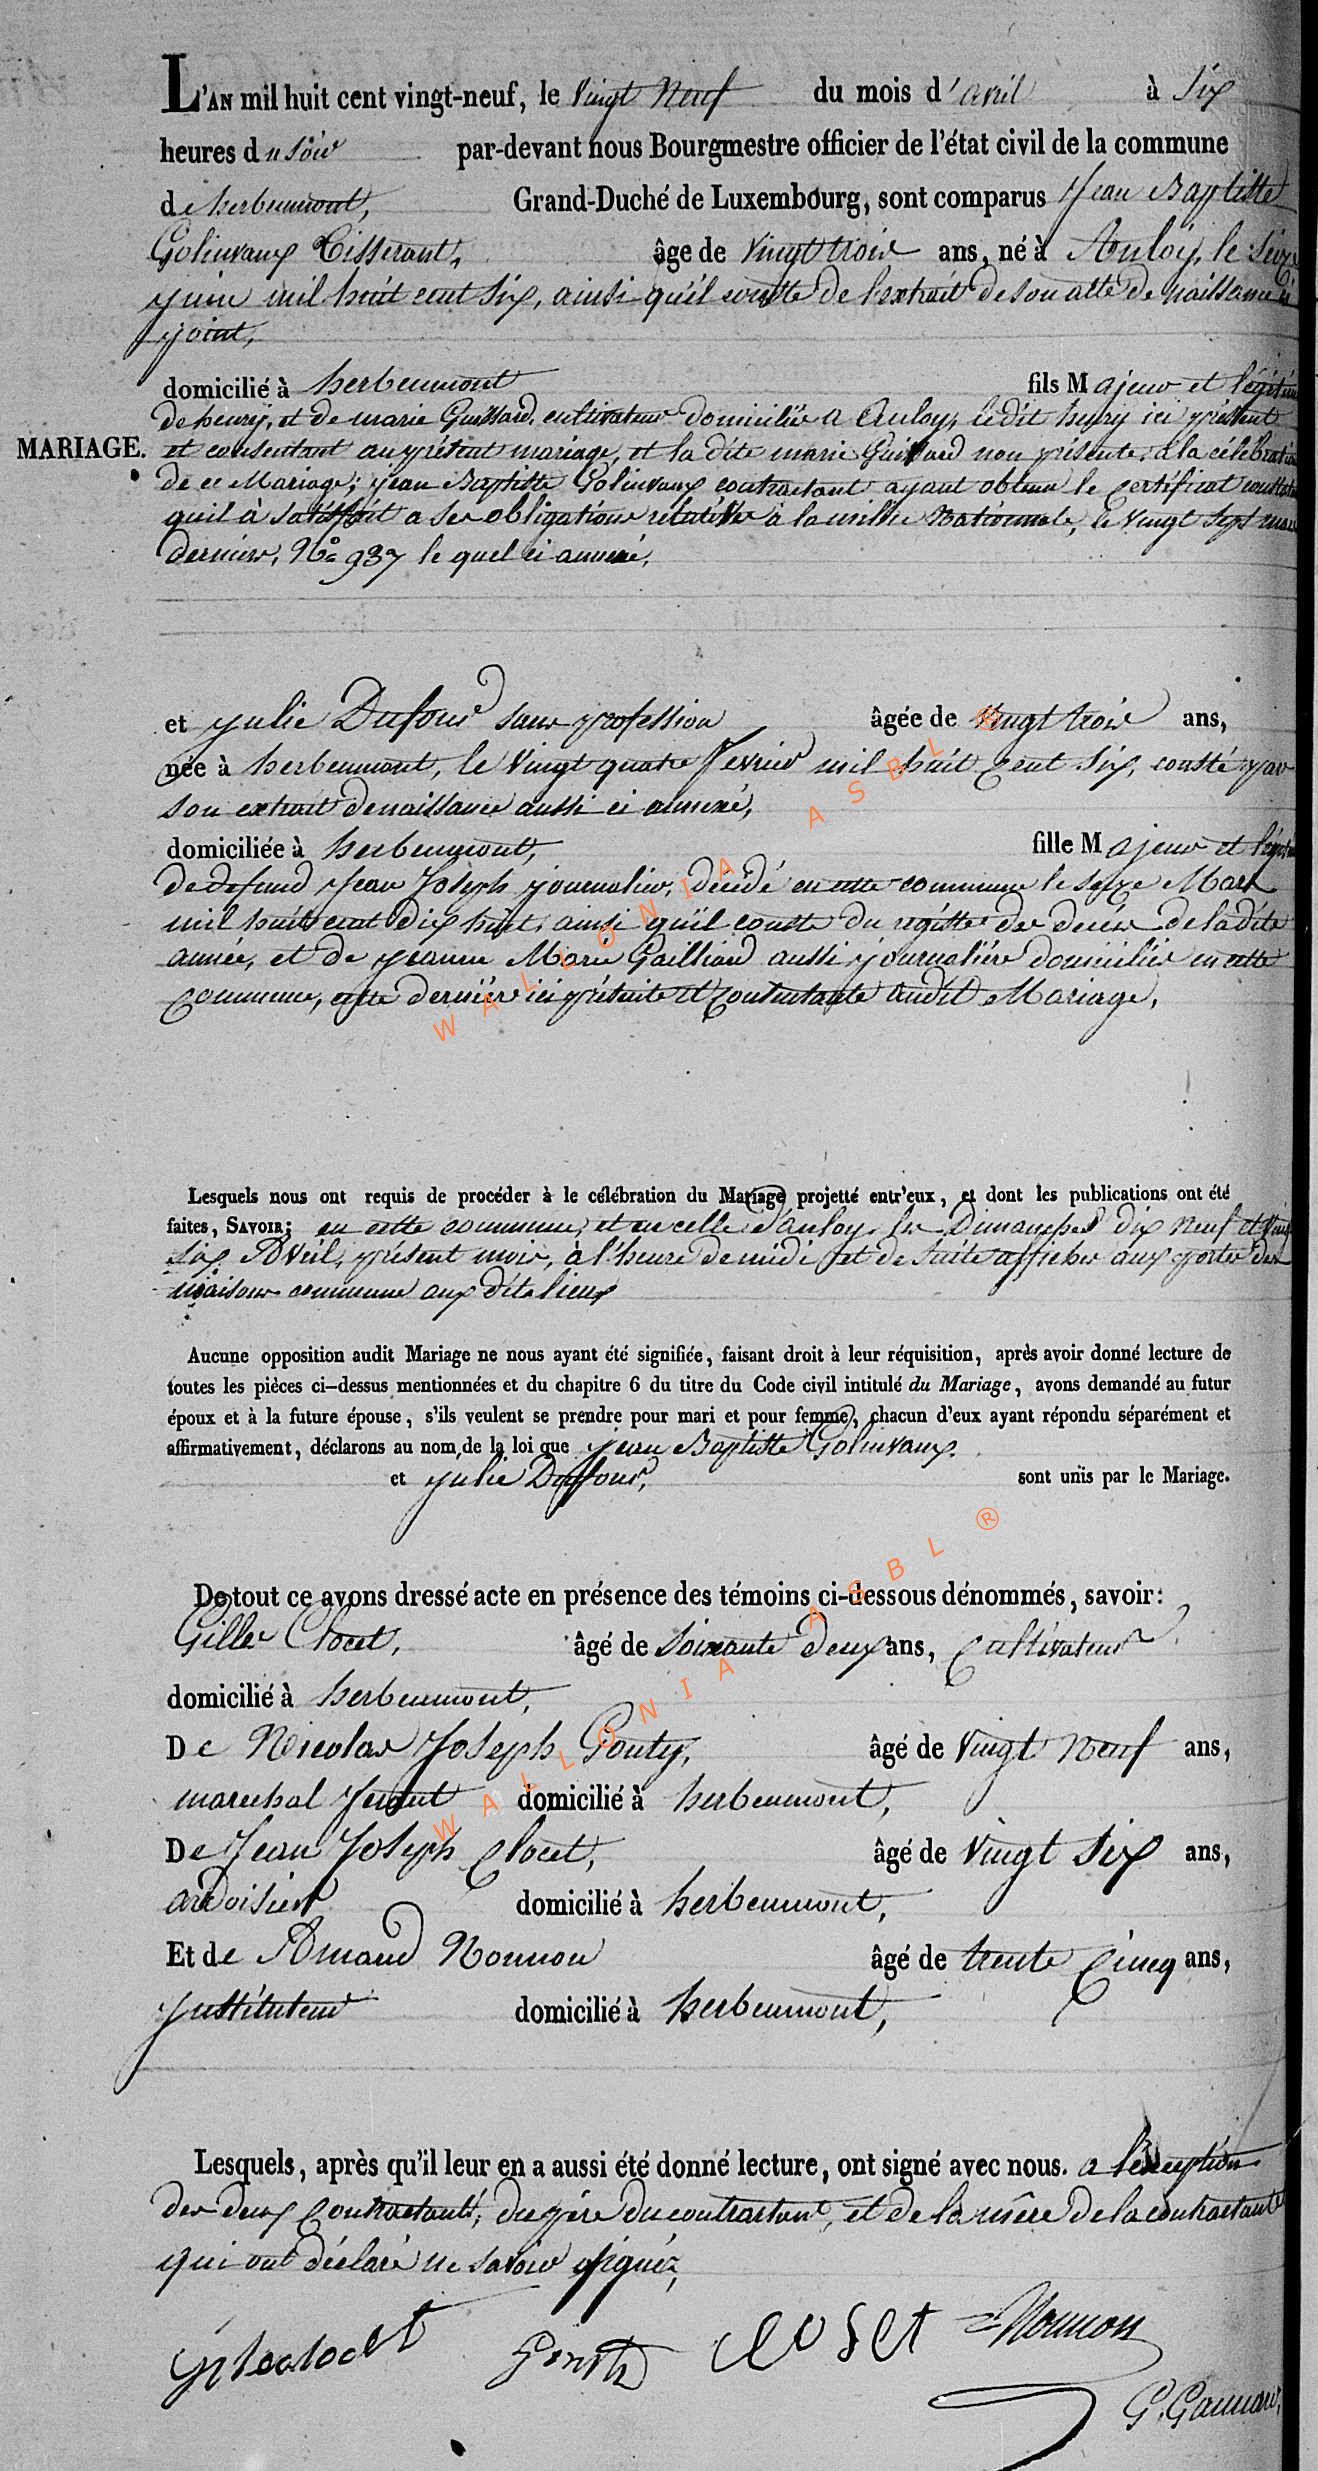 L'AN mil huit cent vingt-neuf, le Vingt Neuf du mois d'avril à Six
heures du Soir par-devant nous Bourgmestre officier de l'état civil de la commune
de herbeumont, Grand-Duché de Luxembourg, sont comparus Jean Baptiste
Golinvaux Tisserant, âge de Vingt trois ans, né à Auloy, le Seize
juin mil huit cent Six, ainsi qu'il conste de l'extrait de son acte de naissance ci
joint,
domicilié à herbeumont fils Majeur et légitime
de henry, et de marie Guissard, cultivateur domiciliés a Auloy, ledit henry ici présent
MARIAGE. et consentant au présent mariage, et la dite marie Guissard non présente à la célébration
de ce Mariage; jean Baptiste Golinvaux contractant ayant obtenu le certificat constatant
quil à satisfait a ses obligations relatives à la milice Nationale, le Vingt Sept mars
dernier, No 937 le quel ci annexé,
et julie Dufour sans profession âgée de Vingt trois ans,
née à herbeumont, le Vingt quatre fevrier mil huit Cent Six, consté par
son extrait de naissance aussi ci annexé,
domiciliée à herbeumont, fille Majeur et légitime
de defund Jean Joseph journalier, décédé en cette commune le Seize Mars
mil huit cent Dix huit, ainsi qu'il conste du registre de décès de ladite
année, et de jeanne Marie Gailliard aussi journalière domiciliée en cette
Commune, cette dernière ici présente et Contentante audit Mariage,
Lesquels nous ont requis de procéder à le célébration du Mariage projetté entr'eux, et dont les publications ont été
faites, SAVOIR; en cette commune, et en celle d'auloy, les Dimanches dix neuf et Vingt
Six Avril, présent mois, à l'heure de midi et de suite affichés aux portes des
maisons commune aux dits lieux
Aucune opposition audit Mariage ne nous ayant été signifiée, faisant droit à leur réquisition, après avoir donné lecture de
toutes les pièces ci-dessus mentionnées et du chapitre 6 du titre du Code civil intitulé du Mariage, avons demandé au futur
époux et à la future épouse, s'ils veulent se prendre pour mari et pour femme, chacun d'eux ayant répondu séparément et
affirmativement, déclarons au nom de la loi que jean Baptiste Golinvaux
et julie Duffour, sont unis par le Mariage.
De tout ce avons dressé acte en présence des témoins ci-dessous dénommés, savoir:
Gilles Clocet, âgé de Soixante Deux ans, Cultivateur
domicilié à herbeumont,
De Nicolas Joseph Ponty, âgé de Vingt Neuf ans,
marechal ferant domicilié à herbeumont,
De Jean Joseph Clocet, âgé de Vingt Six ans,
ardoisier domicilié à herbeumont,
Et de Amand Nonnon âgé de trente Cinq ans,
Instituteur domicilié à herbeumont,
Lesquels, après qu'il leur en a aussi été donné lecture, ont signé avec nous. a l'exeption
des deux Contractants, du père du contractant, et de la mère de la contractante
qui ont déclaré ne savoir signer,
Nonnon
WALLONIA ASBL ®
WALLONIA ASBL ®